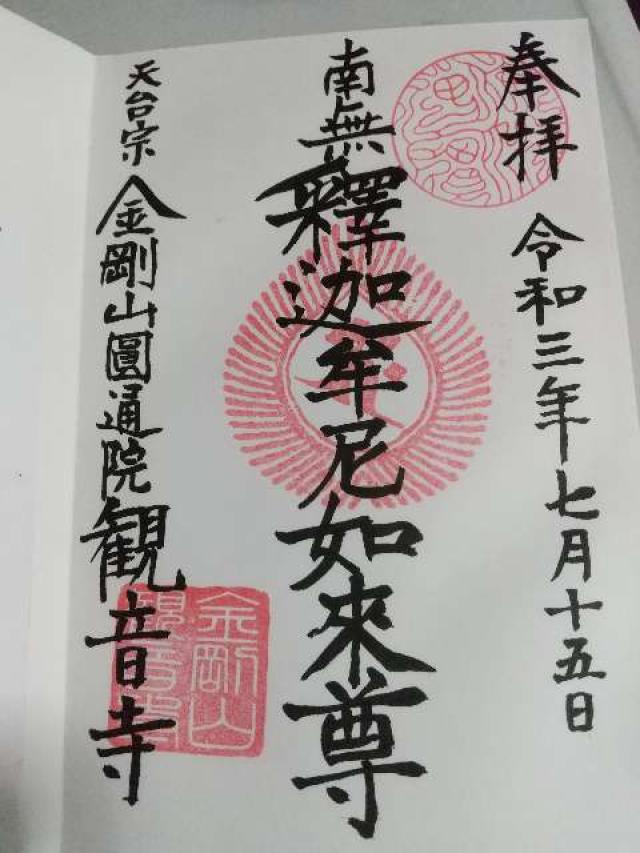 奉拝
令和三年七月十五日
南無釋迦牟尼如来尊
天台宗 金剛山圓通院観音寺
金剛山
観音寺